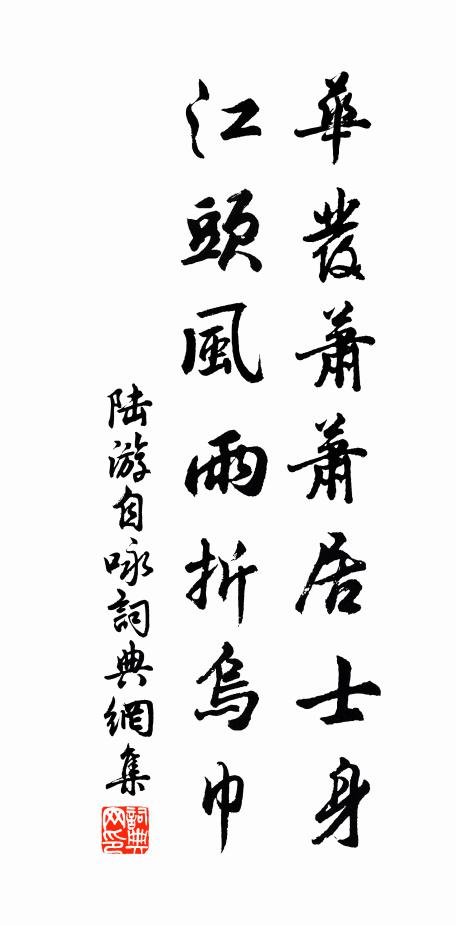 華發蕭蕭居士身
江頭風雨折烏巾
陸游自咏詞典網集
詞典
网印